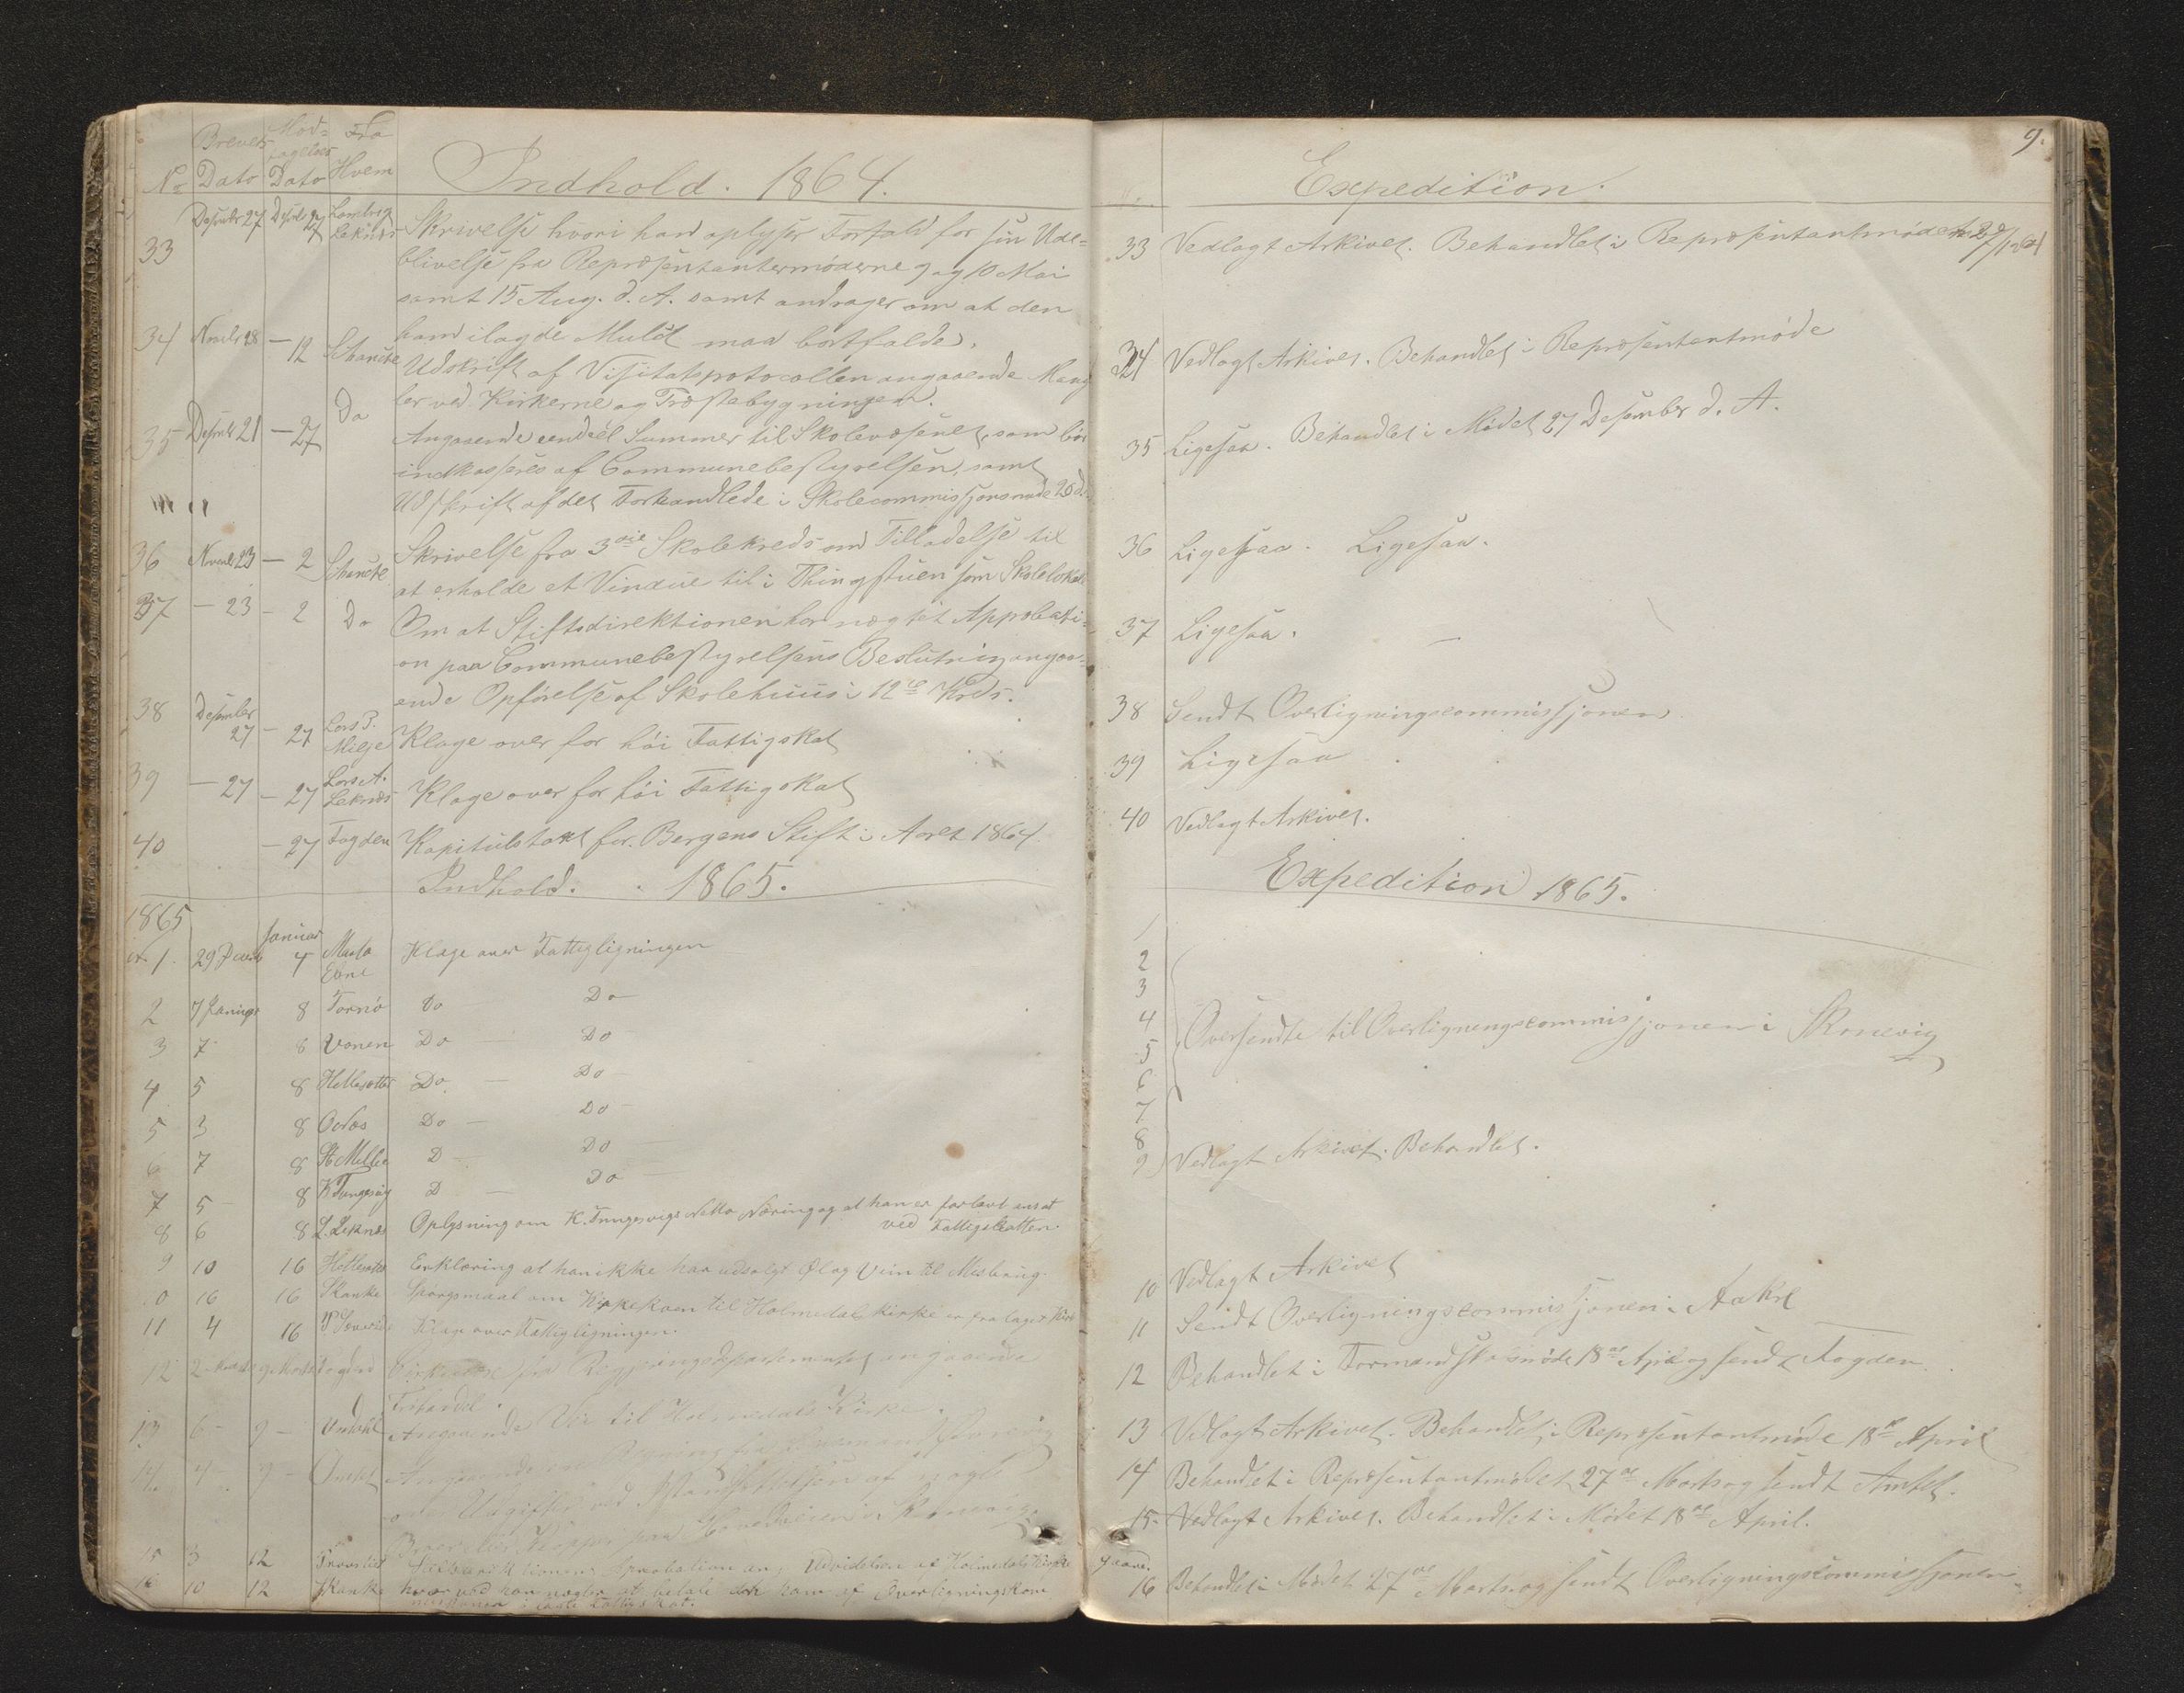 No
Brevets Dato
Modtagelses Dato
Fra Hvem
Indhold. 1864.
33 Desembr 27 Desbr 27 Leknæs Skrivelse hvori han oplyser Forfald for sin Ude-
blivelse fra Repræsentantermøderne 9 og 10 Mai
samt 15 Aug. d. A. samt andrager om at den
ham ilagde Mulct maa bortfalde.
34 Novbr 28 — 12 Schancke Udskrift af Visitatsprotocollen angaaende Mang
ler ved Kirkerne og Præstebygningen.
35 Desembr 21 — 27 Do Angaaende eendeel Summer til Skolevæsenet, som bør
indkasseres af Communebestyrelsen, samt
Udskrift af det Forhandlede i Skolecommissjonsmøde 20 d.
36 Novembr 23 — 2 Schancke Skrivelse fra 3die Skolekreds om Tilladelse til
at erholde et Vindue til i Thingstuen som Skolelokale
37 — 23 — 2 Do Om at Stiftsdirektionen har nægtet Approbati-
on paa Communebestyrelsens Beslutning angaa-
ende Opførelse af Skolehuus i 12te Kreds.
38 Desember 27 — 27 Lars P. Milje Klage over for høi Fattigskat
39 — 27 — 27 Lars A. Leknæs Klage over for høi Fattigskat
40 — 27 Fogden Kapitulstaxt for Bergens Stift i Aaret 1864.
Indhold. 1865.
1865
Januar
1. 29 Decemb 4 Klage over Fattigligningen
2 7 Januar 8 Tornø Do — Do
3 7 8 Vonen Do — Do
4 5 8 Do — Do
5 3 8 Do — Do
6 7 8 D — Do
7 5 8 K Tungesvig D — Do
8 6 8 L. Leknæs Oplysning om K. Tungesvigs Netto Næring og at han er forlavt ansat
ved Fattigskatten.
9 10 16 Erklæring at han ikke har udsolgt Øl og Viin til Misbrug.
10 16 16 Skanke Spørgsmaal om Holmedals Kirke er fra taget
11 4 16 Klage over Fattigligningen.
12 2 Marts 9 Marts Fogden Cirkulære fra Regjeringsdepartementet angaaende
13 6 — 9 — Angaaende Vei til Holmedals Kirke.
14 7 — 9 — Amtet Angaaende
15 3 12 Provstiet Stiftsdirektionens Aprobation ang. Udvidelsen af Holmedals Kirke
16 10 12 Skanke hvorved han nægter at betale den ham af Overligningskom
missionen i lagte Fattigskat.
9.
Expedition.
33 Vedlagt Arkivet. Behandlet i Repræsentantmødet 27/12 64
34 Vedlagt Arkivet. Behandlet i Repræsentantmøde
35 Ligesaa. Behandlet i Mødet 27 Desember d. A.
36 Ligesaa. Ligesaa.
37 Ligesaa.
38 Sendt Overligningscommissjonen
39 Ligesaa
40 Vedlagt Arkivet.
Expedition 1865.
1
2
3
4
5
6
7
Oversendte til Overligningscommissjonen i Skonevig
8
9 Vedlagt Arkivet. Behandlet.
10 Vedlagt Arkivet
11 Sendt Overligningscommissjonen i Aakre
12 Behandlet i Formandskabsmøde 18de April og sendt Fogden
13 Vedlagt Arkivet. Behandlet i Repræsentantmøde 18de April
14 Behandlet i Repræsentantmødet 27de Marts og sendt Amtet.
15. Vedlagt Arkivet. Behandlet i Mødet 18de April.
16 Behandlet i Mødet 27de Marts og sendt Overligningscommissjonen